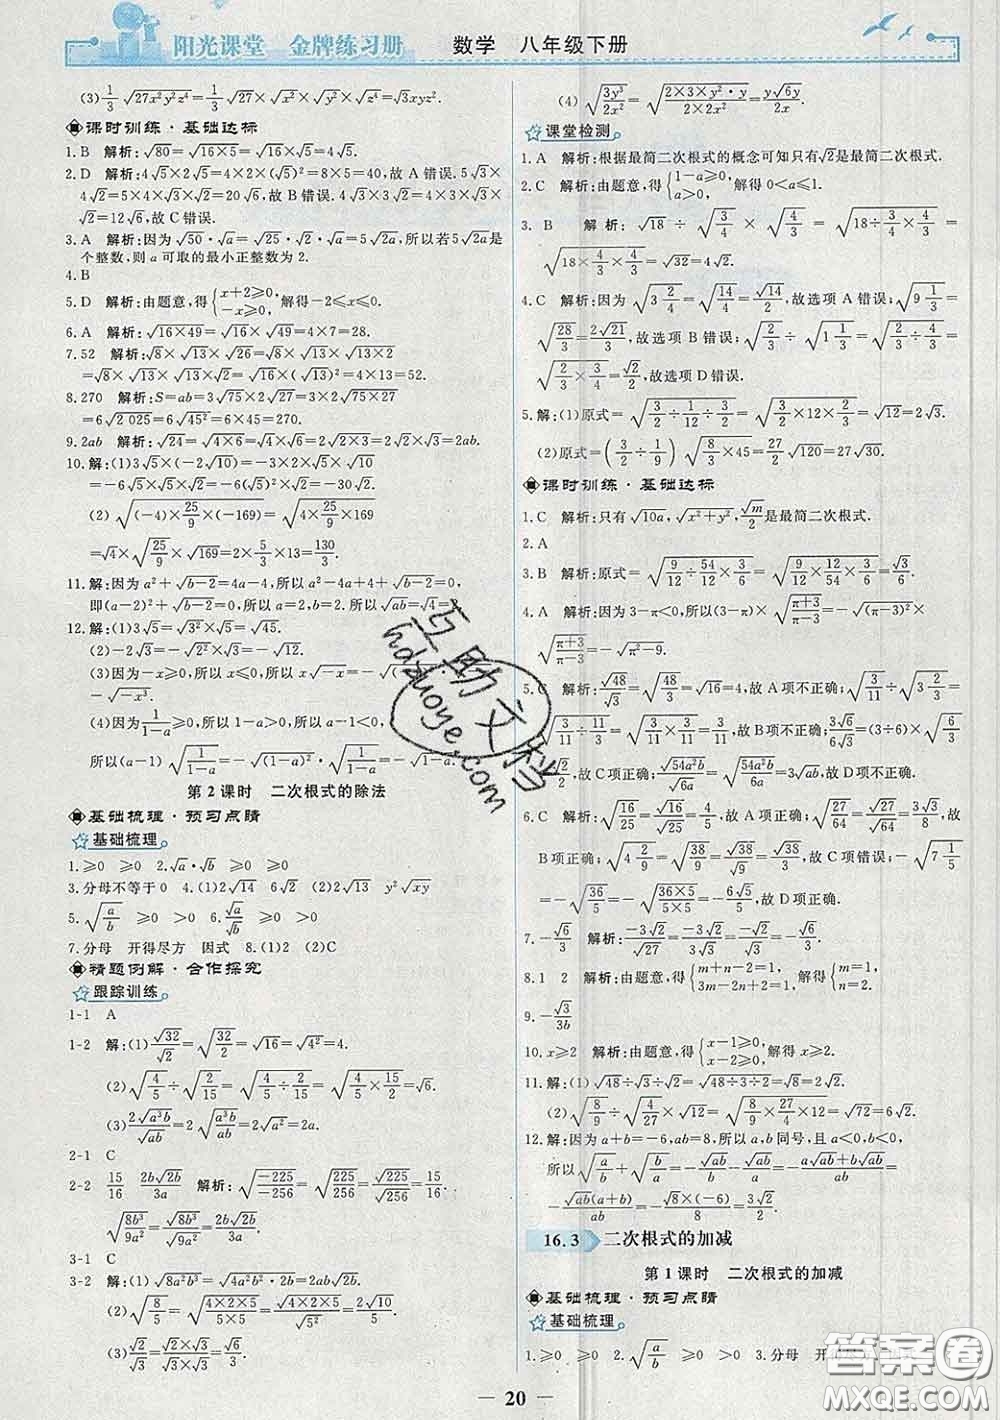 阳光课堂 金牌练习册 数学 八年级下册
(3)1/3√27x²y²z⁴=1/3√27×√x²×√y²×√z⁴=√3xyz².
课时训练·基础达标
1.B 解析:√80=√16×5=√16×√5=4√5.
2.D 解析:4√5×2√5=4×2×(√5)²=8×5=40,故A错误.5√3×
4√2=5×4×√3×√2=20√6,故B错误.4√3×3√2=4×3×√3×
√2=12√6,故C错误.
3.A 解析:因为√50·√a=√25·√2·√a=5√2a,所以若5√2a是
个整数,则a可取的最小正整数为2.
4.B
5.D 解析:由题意,得{x+2≥0, -x≥0, 解得-2≤x≤0.
6.A 解析:√16×49=√16×√49=4×7=28.
7.52 解析:√8×√13×√26=√8×√13×√13×2
=√8×√13×√13×√2=√16×(√13)²=4×13=52.
8.270 解析:S=ab=3√75×2√27=3×2√75×27
=6√2 025=6√45²=6×45=270.
9.2ab 解析:√24=√4×6=√4×√6=2√2×3=2√2×√3=2ab.
10.解:(1)3√5×(-2√10)=-3×2×√5×√10
=-6√5×√5×√2=-6×(√5)²×√2=-30√2.
(2)√(-4)×25/9×(-169)=√4×25/9×169
=√4×√25/9×√169=2×5/3×13=130/3.
11.解:因为a²+√b-2=4a-4,所以a²-4a+4+√b-2=0,
即(a-2)²+√b-2=0,所以a=2,b=2.所以√ab=√4=2.
12.解:(1)3√5=√3²×√5=√45.
(2)-2√3=-√2²×√3=-√12.
(3)因为-x≥0,所以x≤0,所以x√-x=-√
-√-x³.
(4)因为1/1-a≥0,所以1-a>0,所以a-1<0,
所以(a-1)√1/1-a=-√(1-a)²·√1/1-a=-√1-a.
第2课时 二次根式的除法
基础梳理·预习点睛
基础梳理
1.≥0 ≥0 2.√a·√b ≥0 ≥0
3.分母不等于0 4.(1)2√14 6√2 (2)2√14 y²√xy
5.√a/b ≥0 >0 6.√a/√b ≥0 >0
7.分母 开得尽方 因式 8.(1)2 (2)C
精题例解·合作探究
跟踪训练
1-1 A
1-2 解:(1)√32/√2=√32/2=√16=√4²=4.
(2)√4/5÷√2/15=√4/5÷2/15=√4/5×15/2=√6.
(3)2√a³b/√ab=2√a³b/ab=2√a²=2a.
2-1 C
2-2 15/16 2b√2b/3a 解析:√-225/-256=√225/256=√225/√256=15/16.
√8b³/9a²=√8b³/√9a²=2b√2b/3a.
3-1 C
3-2 解:(1)√8a²b³=√4a²b²·2b=2ab√2b.
(2)√8/5=√4×2×5/5×5=√4×2×5/√5×5=2√10/5.
(3)√2/√3=√2×√3/√3×√3=√6/3.
(4)√3y³/2x²=√(2×3×y²·y)/2×2x²=y√6y/2x.
课堂检测
1.A 解析:根据最简二次根式的概念可知只有√2是最简二次根式.
2.C 解析:由题意,得{1-a≥0, a>0, 解得0<a≤1.
3.B 解析:√18÷√3/4×√4/3=√18÷3/4×4/3=
√18×4/3×4/3=√32=4√2.
4.C 解析:因为√3 2/4=√14/4=√14/2,故选项A错误;√9 1/3=
√28/3=2√21/3,故选项B错误;√3/2÷√1 1/3=
√3/2×3/4=√2/2,故选项D错误.
5.解:(1)原式=√3/2÷1/12÷2/3... =√3/2×12×2/3=√12=2√3.
(2)原式=(3/2÷1/9)√8/3×45=27/2√120=27√30.
课时训练·基础达标
1.C 解析:只有√10a,√x²+y²,√m/2是最简二次根式.
2.A
3.B 解析:原式=√9/12÷54/12×3/6=√9/12×12/54×3/6=√3/6.
4.A 解析:因为3-π<0,所以(3-π)×√π+3/π-3=-√(π-3)²×
√π+3/π-3=-√π²-9.
5.C 解析:√48/√3=√48/3=√16=4,故A项不正确;√3/11÷√3 2/3=
√3/11÷11/3=√3/11×3/11=3/11,故B项不正确;3√6/6√3=(3÷6)×√6/3
=√2/2,故C项正确;√54a²b/√6a=√54a²b/6a=3√ab,故D项不正确.
6.C 解析:√16/25=√16/√25=4/5,故A项正确;√27/64=√27/√64=3√3/8,故
B项正确;√4 2/9=√38/9=√38/√9=√38/3,故C项错误;-√7 1/5
=-√36/5=-√36×5/5×5=-6√5/5,故D项正确.
7.-√6/3 解析:-3√2/√27=-3√2/3√3=-√2/√3=-√6/3.
8.1 2 解析:由题意,得{m+n-2=1, 3m-2n+2=1, 解得{m=1, n=2.
9.-√3/3b
10.x≥2 解析:由题意,得{x-1≥0, x-2≥0, 解得x≥2.
11.解:(1)√48÷√3÷√2=√48÷3÷2=√8=2√2.
(2)√8/9÷√4/27×√12=√8/9×27/4×12=√72=6√2.
12.解:因为a+b=-6,ab=8,所以a,b同号,且a<0,b<0,
所以√a/b+√b/a=-√ab/b-√ab/a=
-√ab(a+b)/ab=-√8×(-6)/8=3√2/2.
16.3 二次根式的加减
第1课时 二次根式的加减
基础梳理·预习点睛
基础梳理
1.≥0 ≥0 2.√a/b ≥0 >0 3.分母
20
互助文档
hdzuoye.com
答案圈
MXQE.COM